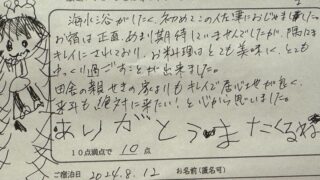 海水浴がしたく、初めてこの佐津におじゃましました。
お宿は正直、あまり期待していませんでしたが、隅にも
キレイにされており、お料理はとても美味しく、とても
ゆっくり過ごすことが出来ました。
田舎の親せきの家よりもキレイで居心地が良く、
来年も絶対に来たい!と心から思いました。
ありがとうまたくるね
10点満点で 10 点
ご宿泊日 2024.8.12 お名前(匿名可)